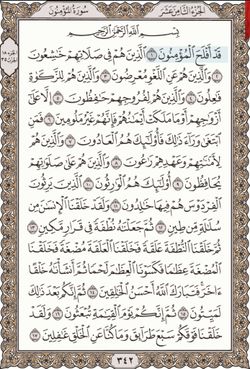 الجزء الثامن عشر
سورة المؤمنون
بِسْمِ ٱللَّهِ ٱلرَّحْمَٰنِ ٱلرَّحِيمِ
قَدْ أَفْلَحَ ٱلْمُؤْمِنُونَ ١ ٱلَّذِينَ هُمْ فِى صَلَاتِهِمْ خَٰشِعُونَ
٢ وَٱلَّذِينَ هُمْ عَنِ ٱللَّغْوِ مُعْرِضُونَ ٣ وَٱلَّذِينَ هُمْ لِلزَّكَوٰةِ
فَٰعِلُونَ ٤ وَٱلَّذِينَ هُمْ لِفُرُوجِهِمْ حَٰفِظُونَ ٥ إِلَّا عَلَىٰٓ
أَزْوَٰجِهِمْ أَوْ مَا مَلَكَتْ أَيْمَٰنُهُمْ فَإِنَّهُمْ غَيْرُ مَلُومِينَ ٦ فَمَنِ
ٱبْتَغَىٰ وَرَآءَ ذَٰلِكَ فَأُو۟لَٰٓئِكَ هُمُ ٱلْعَادُونَ ٧ وَٱلَّذِينَ هُمْ
لِأَمَٰنَٰتِهِمْ وَعَهْدِهِمْ رَٰعُونَ ٨ وَٱلَّذِينَ هُمْ عَلَىٰ صَلَوَٰتِهِمْ
يُحَافِظُونَ ٩ أُو۟لَٰٓئِكَ هُمُ ٱلْوَٰرِثُونَ ١٠ ٱلَّذِينَ يَرِثُونَ
ٱلْفِرْدَوْسَ هُمْ فِيهَا خَٰلِدُونَ ١١ وَلَقَدْ خَلَقْنَا ٱلْإِنسَٰنَ مِن
سُلَٰلَةٍ مِّن طِينٍ ١٢ ثُمَّ جَعَلْنَٰهُ نُطْفَةً فِى قَرَارٍ مَّكِينٍ ١٣
ثُمَّ خَلَقْنَا ٱلنُّطْفَةَ عَلَقَةً فَخَلَقْنَا ٱلْعَلَقَةَ مُضْغَةً فَخَلَقْنَا
ٱلْمُضْغَةَ عِظَٰمًا فَكَسَوْنَا ٱلْعِظَٰمَ لَحْمًا ثُمَّ أَنشَأْنَٰهُ خَلْقًا
ءَاخَرَ فَتَبَارَكَ ٱللَّهُ أَحْسَنُ ٱلْخَٰلِقِينَ ١٤ ثُمَّ إِنَّكُم بَعْدَ ذَٰلِكَ
لَمَيِّتُونَ ١٥ ثُمَّ إِنَّكُمْ يَوْمَ ٱلْقِيَٰمَةِ تُبْعَثُونَ ١٦ وَلَقَدْ
خَلَقْنَا فَوْقَكُمْ سَبْعَ طَرَآئِقَ وَمَا كُنَّا عَنِ ٱلْخَلْقِ غَٰفِلِينَ ١٧
٣٤٢